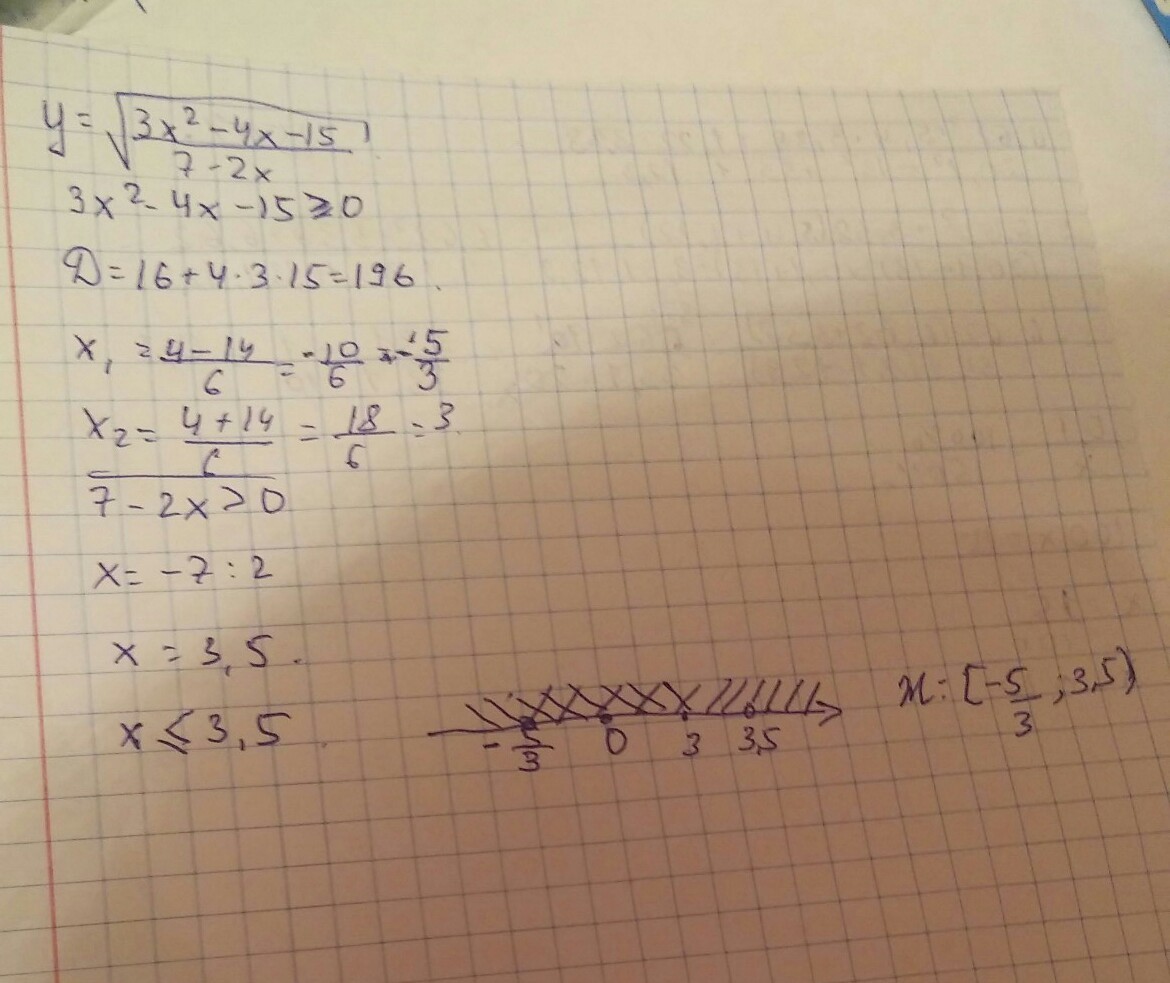 y = √(3x² - 4x - 15)/(7 - 2x)
3x² - 4x - 15 ≥ 0
D = 16 + 4·3·15 = 196.
x₁ = (4 - 14)/6 = -10/6 = -5/3
x₂ = (4 + 14)/6 = 18/6 = 3
7 - 2x > 0
x = -7 : 2
x = 3,5.
x ≤ 3,5.
-5/3 0 3 3,5
x: [-5/3 ; 3,5)